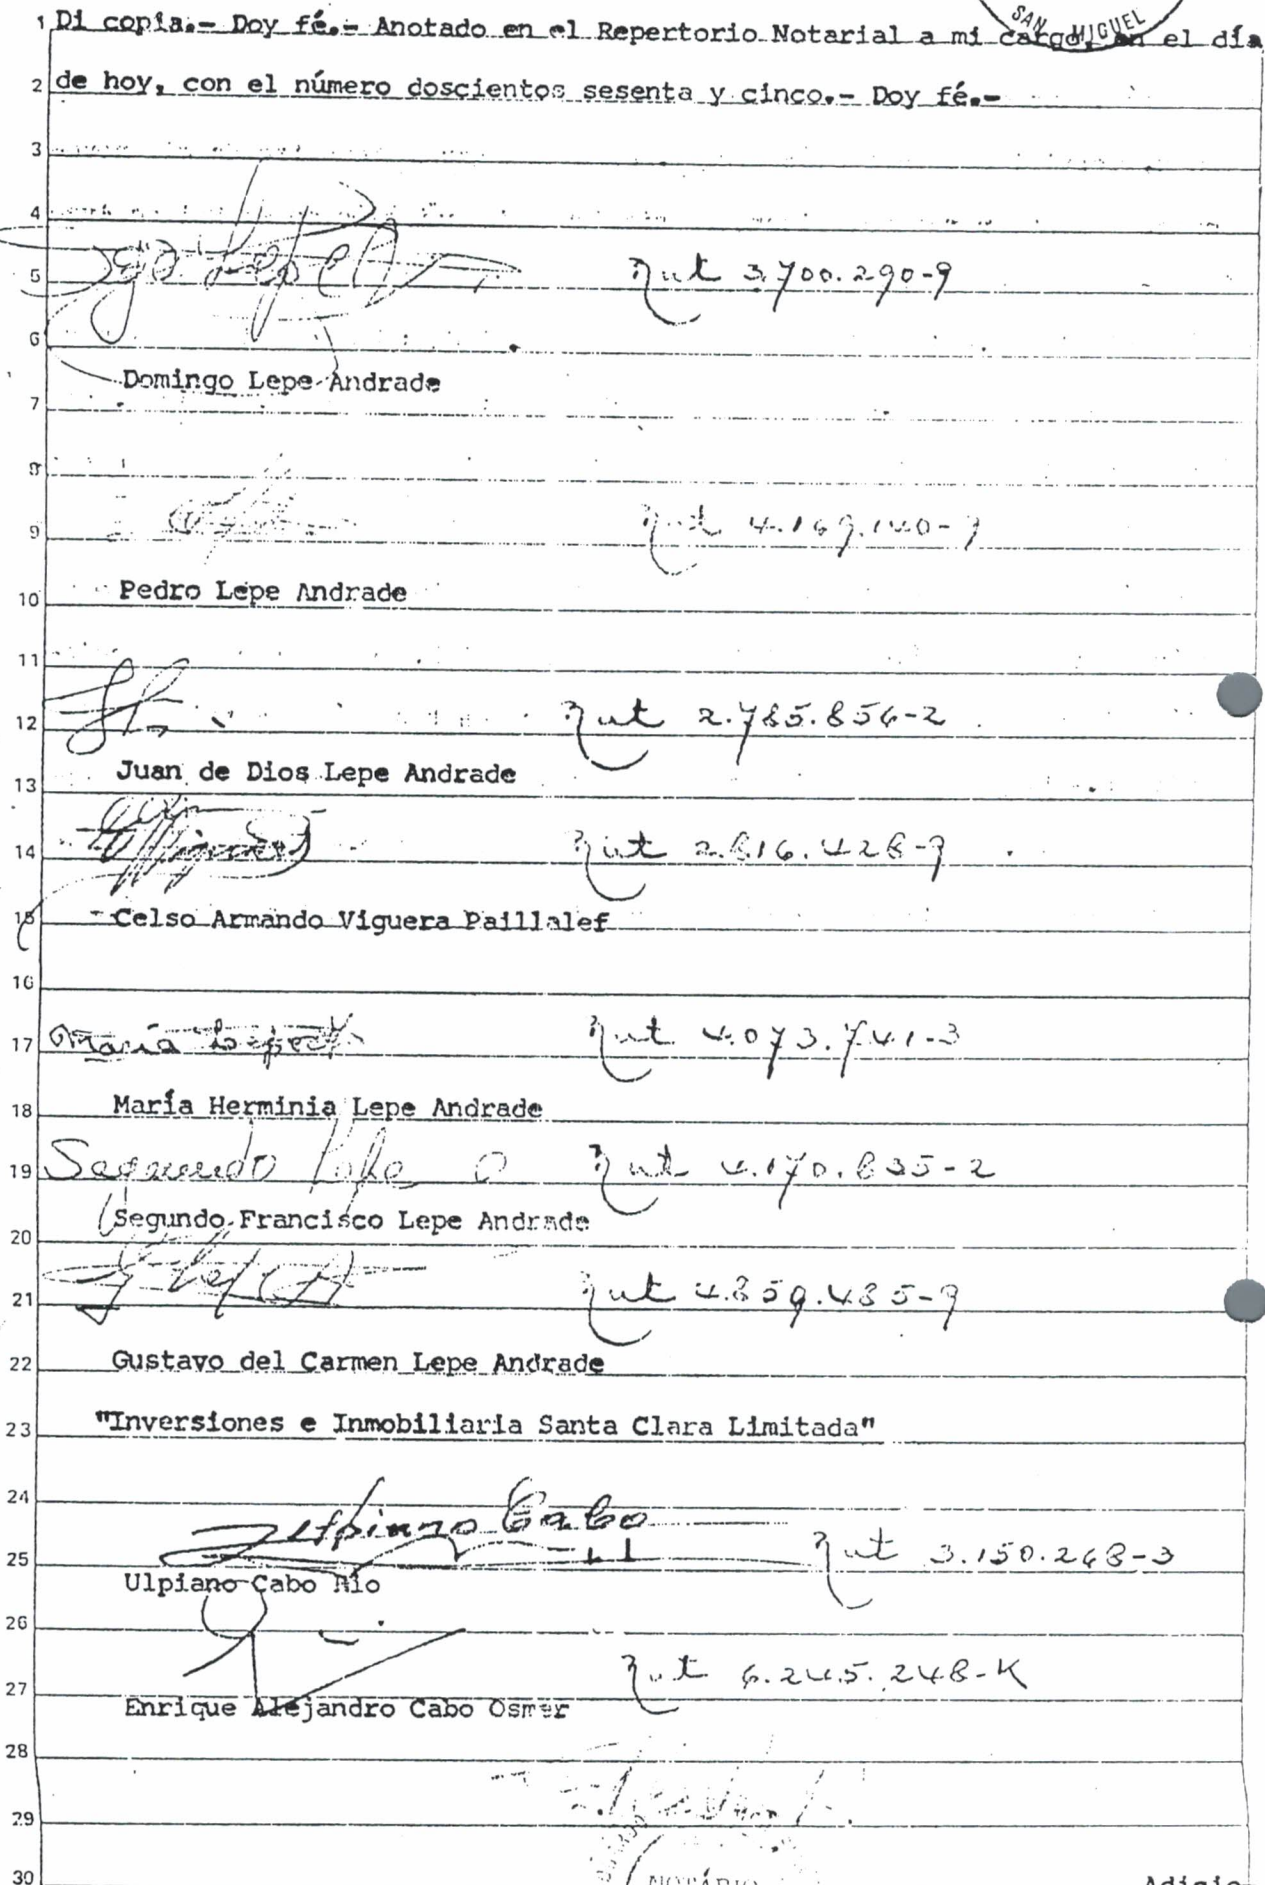 SAN MIGUEL
1 Di copia.- Doy fé.- Anotado en el Repertorio Notarial a mi cargo, en el día
2 de hoy, con el número doscientos sesenta y cinco.- Doy fé.-
3
4
5 Dgo Lepe A Rut 3.700.290-9
6
Domingo Lepe Andrade
7
8
9 Rut 4.169.140-9
10 Pedro Lepe Andrade
11
12 Rut 2.785.856-2
Juan de Dios Lepe Andrade
13
14 Rut 2.816.428-9
15 Celso Armando Viguera Paillalef
16
17 María Lepe A Rut 4.073.741-3
18 María Herminia Lepe Andrade
19 Segundo Lepe Rut 4.170.835-2
Segundo Francisco Lepe Andrade
20
21 Rut 4.859.485-9
22 Gustavo del Carmen Lepe Andrade
23 "Inversiones e Inmobiliaria Santa Clara Limitada"
24
Ulpiano Cabo
25 Rut 3.150.248-3
Ulpiano Cabo Río
26
27 Rut 6.245.248-K
Enrique Alejandro Cabo Osmer
28
29
30 NOTARIO Adicio-